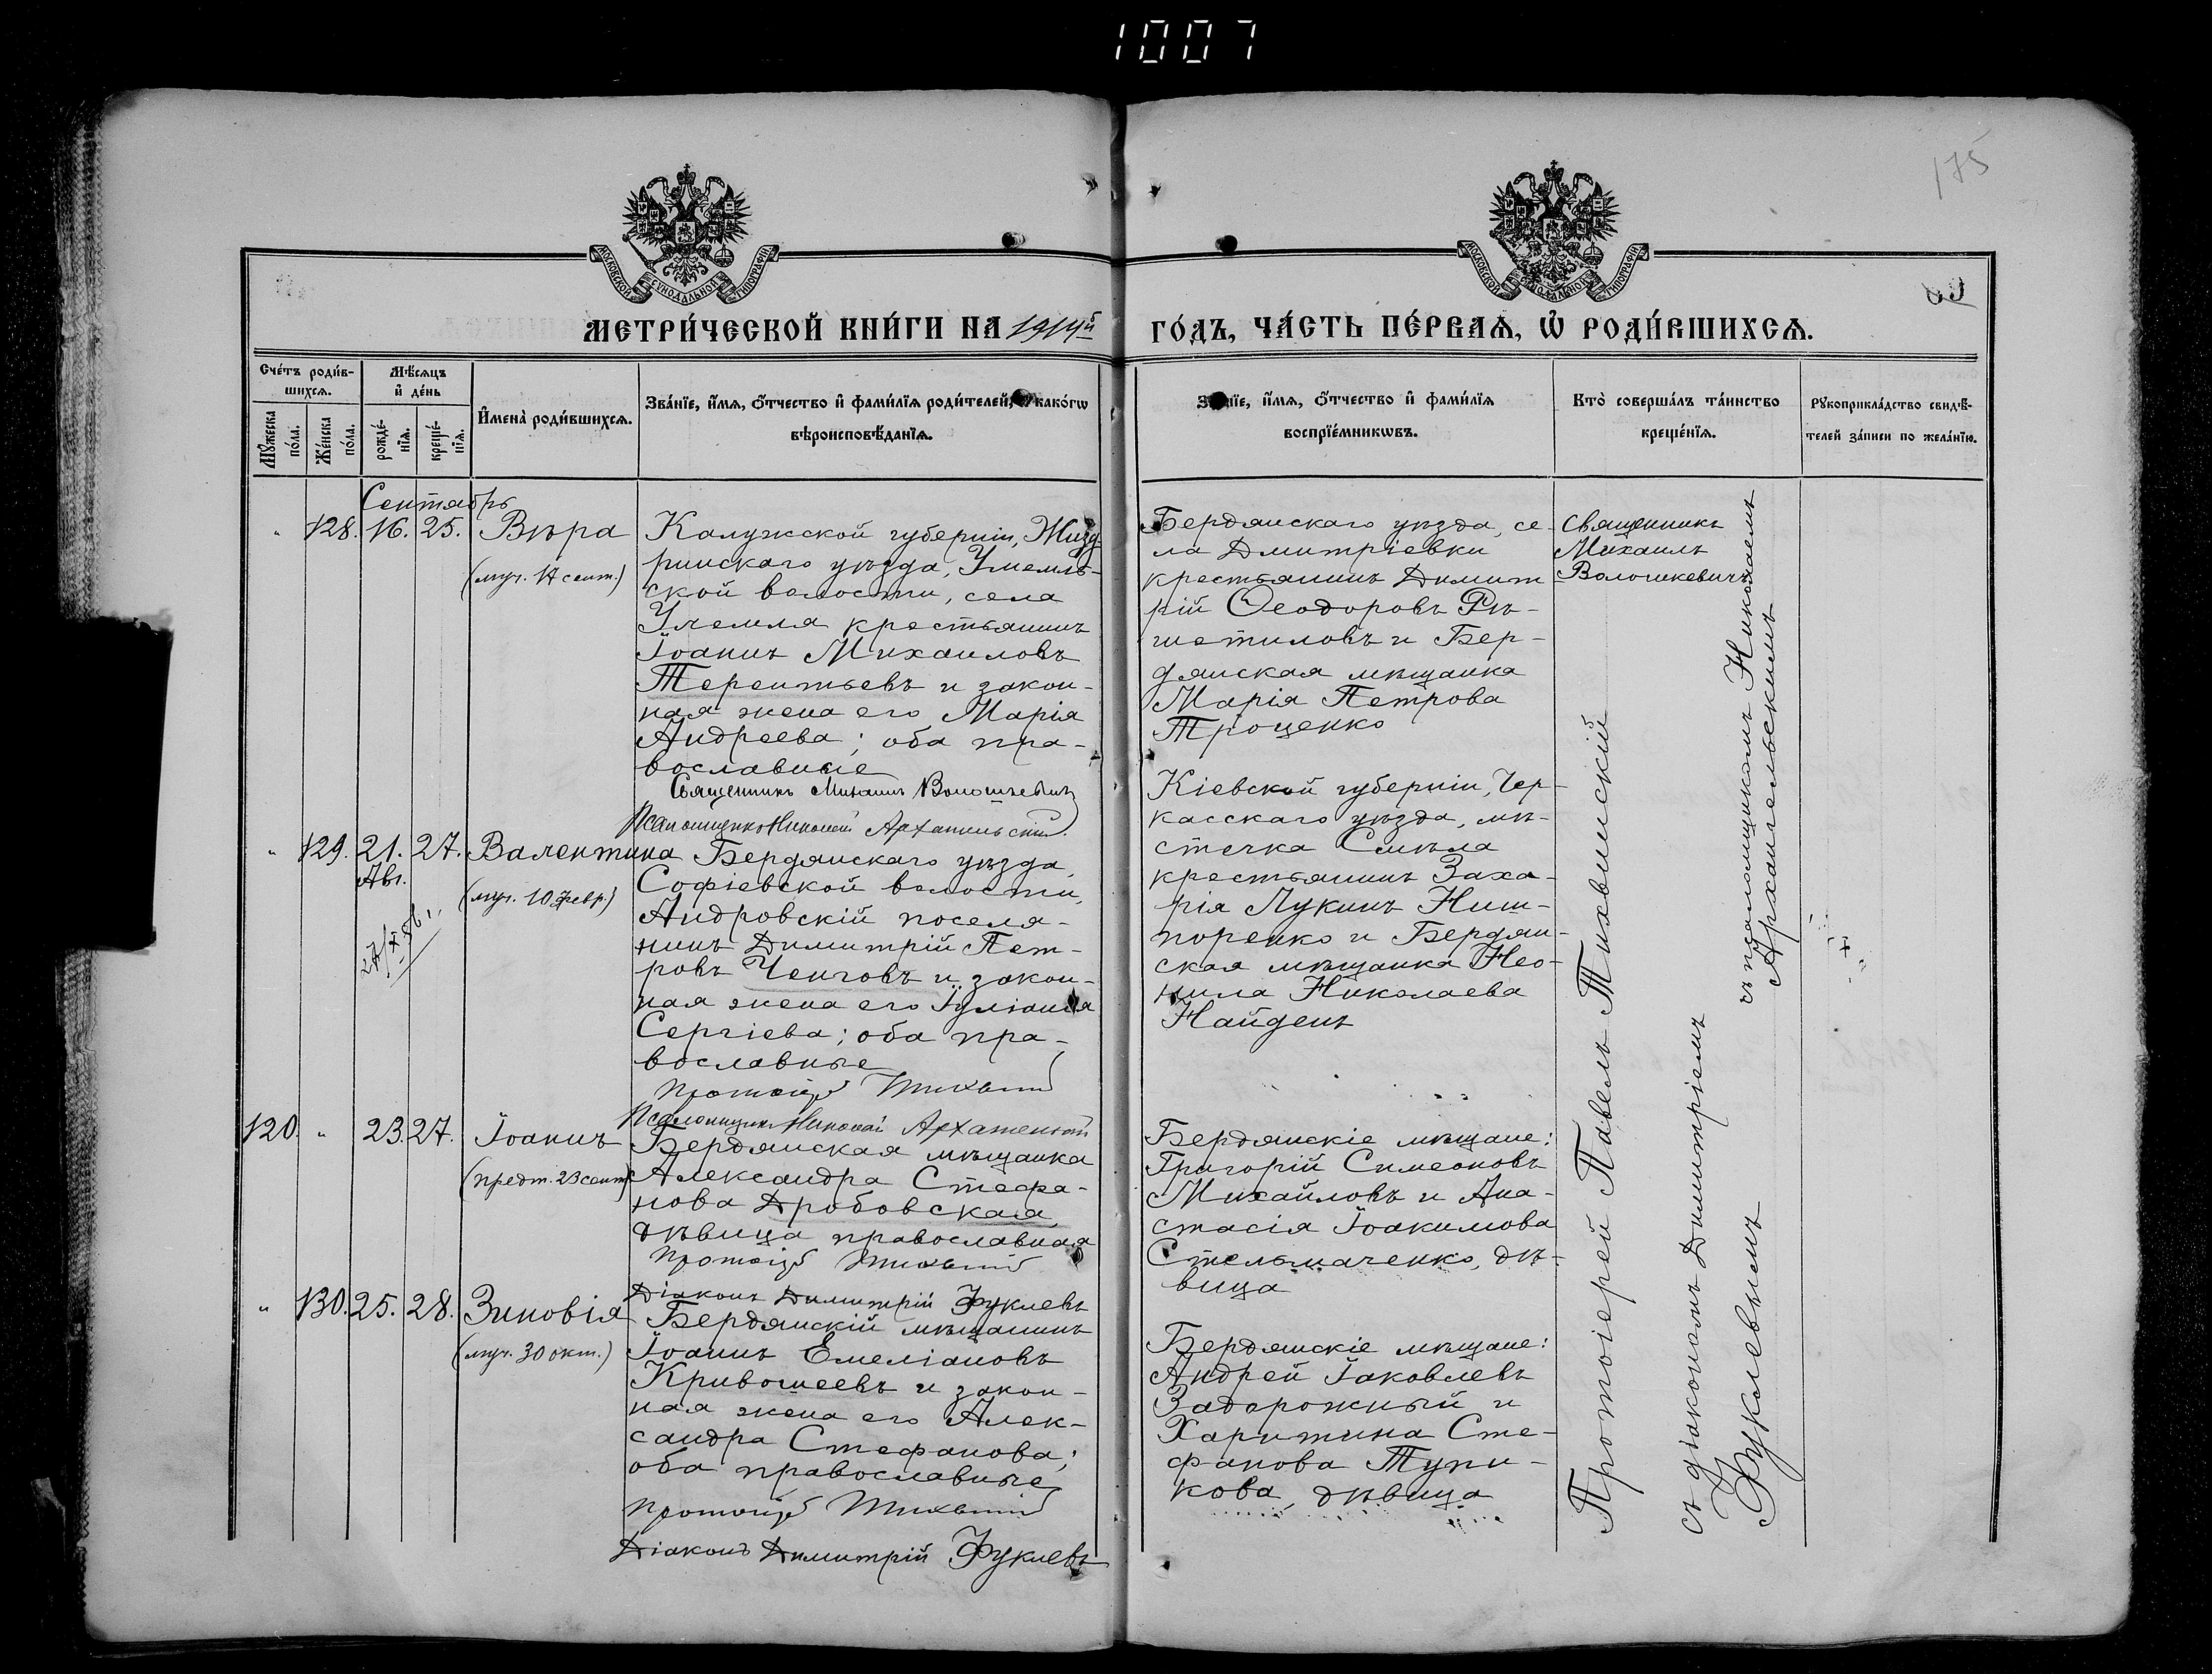 1007
175
МОСКОВСКОЙ СУНОДАЛЬНОЙ ТИПОГРАФІИ
МОСКОВСКОЙ СУНОДАЛЬНОЙ ТИПОГРАФІИ
МЕТРИ́ЧЕСКОЙ КНИ́ГИ НА 1914й
ГО́ДЪ, ЧА́СТЬ ПЕ́РВАѦ, Ѡ РОДИ́ВШИХСѦ.
Сче́тъ роди́в-
шихсѧ.
Мѣ́сѧцъ
и҆ де́нь
Мꙋ́жеска
по́ла.
Же́нска
по́ла.
рожде́-
нїѧ.
креще́-
нїѧ.
И҆мена̀ роди́вшихсѧ.
Зва́нїе, и҆́мѧ, ѻ҆́тчество и҆ фами́лїѧ роди́телей, и҆ како́гѡ
вѣроисповѣ́данїѧ.
Зва́нїе, и҆́мѧ, ѻ҆́тчество и҆ фами́лїѧ
воспрїе́мникѡвъ.
Кто̀ соверша́лъ та́инство
креще́нїѧ.
Рꙋкоприкла́дство свидѣ́-
телей за́писи по жела́нїю.
Сентябрь
" 128. 16. 25. Вѣра
(муч. 17 сент.)
Калужской губерніи, Жизд
ринскаго уѣзда, Улемль-
ской волости, села
Улемля крестьянинъ
Іоаннъ Михаиловъ
Терентьевъ и закон-
ная жена его Марія
Андреева; оба пра-
вославные
Священникъ Михаилъ Волошкевичъ
Псаломщикъ Николай Архангельскій
Бердянскаго уѣзда, се-
ла Дмитріевки
крестьянинъ Димит
рій Ѳеодоровъ Рѣ-
шетиловъ и Бер-
дянская мѣщанка
Марія Петрова
Троценко
Священникъ
Михаилъ
Волошкевичъ
съ псаломщикомъ Николаемъ
Архангельскимъ
" 129. 21. 27. Валентина
Авг.
(муч. 10 февр.)
Бердянскаго уѣзда,
Софіевской волости,
Андровскій поселя-
нинъ Димитрій Пет-
ровъ Ченговъ и закон-
ная жена его Іуліанія
Сергіева; оба пра-
вославные
Протоіер Тихвинскій
Псаломщикъ Николай Архангельскій
Кіевской губерніи, Чер-
касскаго уѣзда, мѣ-
стечка Смѣла
крестьянинъ Заха-
рія Лукинъ Ниш-
поренко и Бердян-
ская мѣщанка Нео-
нила Николаева
Найденъ
120. " 23. 27. Іоаннъ
(предт. 23 сент)
Бердянская мѣщанка
Александра Стефа-
нова Дробовская,
дѣвица православная
Протоіер Тихвинскій
Діаконъ Димитрій Фуклевъ
Бердянскіе мѣщане:
Григорій Симеоновъ
Михайловъ и Ана-
стасія Іоакимова
Стельмаченко, дѣ-
вица
" 130. 25. 28. Зиновія
(муч. 30 окт.)
Бердянскій мѣщанинъ
Іоаннъ Емеліановъ
Кривошеевъ и закон-
ная жена его Алек-
сандра Стефанова;
оба православные
Протоіер Тихвинскій
Діаконъ Димитрій Фуклевъ
Бердянскіе мѣщане:
Андрей Іаковлевъ
Задорожный и
Харитина Сте-
фанова Тупи-
кова, дѣвица
Протоіерей Павелъ Тихвинскій
съ діакономъ Димитріемъ
Фуклевымъ